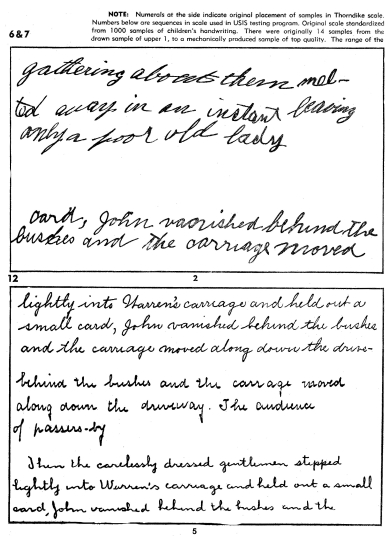 NOTE: Numerals at the side indicate original placement of samples in Thorndike scale.
Numbers below are sequences in scale used in USIS testing program. Original scale standardized
from 1000 samples of children's handwriting. There were originally 14 samples from the
drawn sample of upper 1, to a mechanically produced sample of top quality. The range of the
6&7
gathering about them mel-
ted away in an instant leaving
only a poor old lady
card, John vanished behind the
bushes and the carriage moved
12
2
lightly into Warren's carriage and held out a
small card, John vanished behind the bushes
and the carriage moved along down the drive-
behind the bushes and the carriage moved
along down the driveway. The audience
of passers-by
Then the carelessly dressed gentlemen stepped
lightly into Warren's carriage and held out a small
card, John vanished behind the bushes and the
5